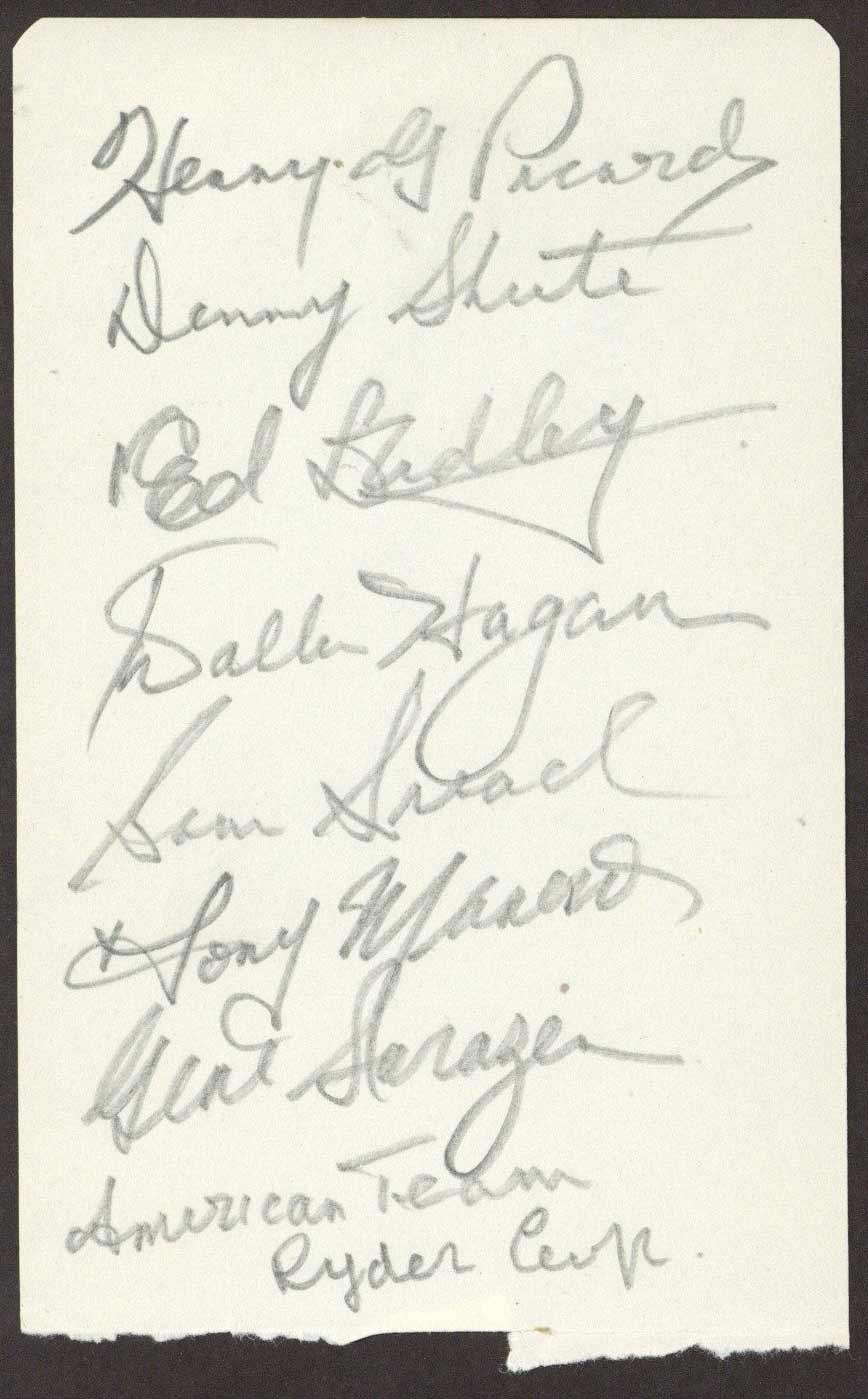 Henry G Picard
Denny Shute
Ed Dudley
Walter Hagen
Sam Snead
Tony Manero
Gene Sarazen
American Team
Ryder Cup.